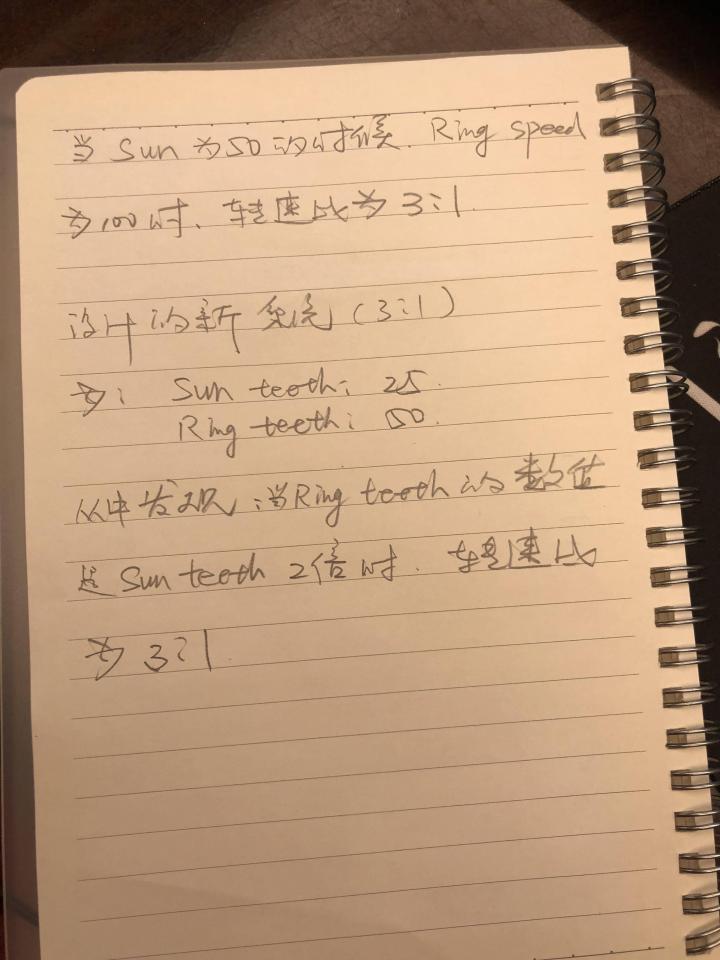 当 Sun 为 50 的时候. Ring speed
为 100 时、转速比为 3:1
设计的新系统 (3:1)
为: Sun teeth: 25.
Ring teeth: 50.
从中发现:当Ring teeth 的数值
是 Sun teeth 2倍时. 转速比
为 3:1.